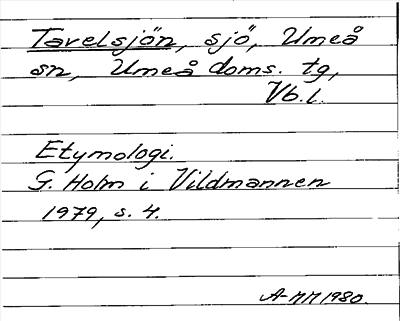 Tavelsjön, sjö, Umeå
sn, Umeå doms. tg,
Vb.l.
Etymologi.
G. Holm i Vildmannen
1979, s. 4.
A-MM 1980.